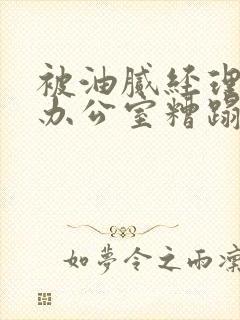 被油腻经理
办公室糟蹋
如夢令之雨凜